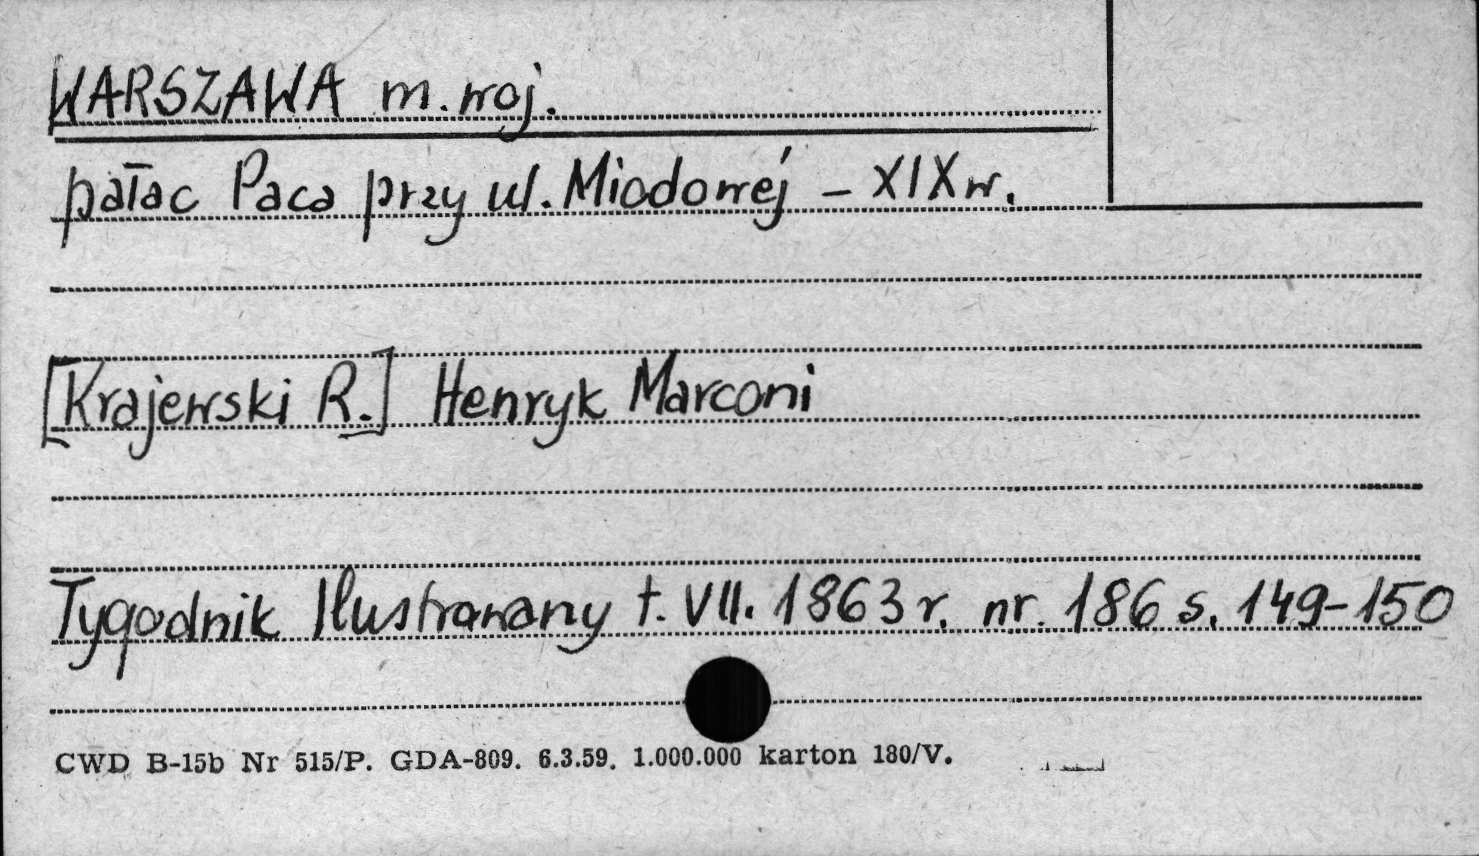 WARSZAWA m. woj.
pałac Paca przy ul. Miodowej – XIX w.
[Krajewski R.] Henryk Marconi
Tygodnik Ilustrowany t. VII. 1863 r. nr. 186 s. 149-150
CWD B-15b Nr 515/P. GDA-809. 6.3.59. 1.000.000 karton 180/V.